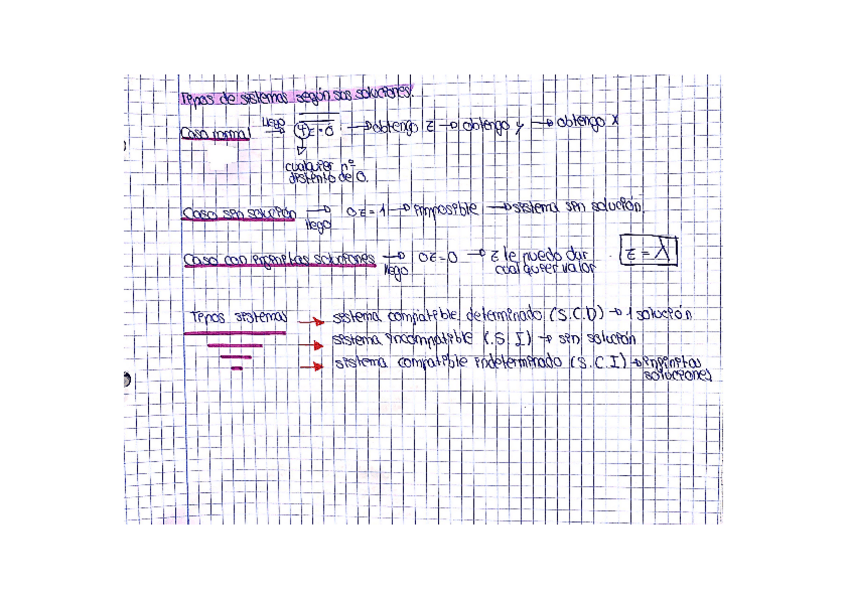 Tipos de sistemas según sus soluciones.
Caso normal llego → 4z = 6 → obtengo z → obtengo y → obtengo x
cualquier nº
distinto de 0.
Caso sin solución → llego 0z = 1 → imposible → sistema sin solución.
Caso con infinitas soluciones → llego 0z = 0 → z le puedo dar cualquier valor z = λ
Tipos sistemas → sistema compatible determinado (S.C.D) → 1 solución
→ sistema incompatible (S.I) → sin solución
→ sistema compatible indeterminado (S.C.I) → infinitas
soluciones